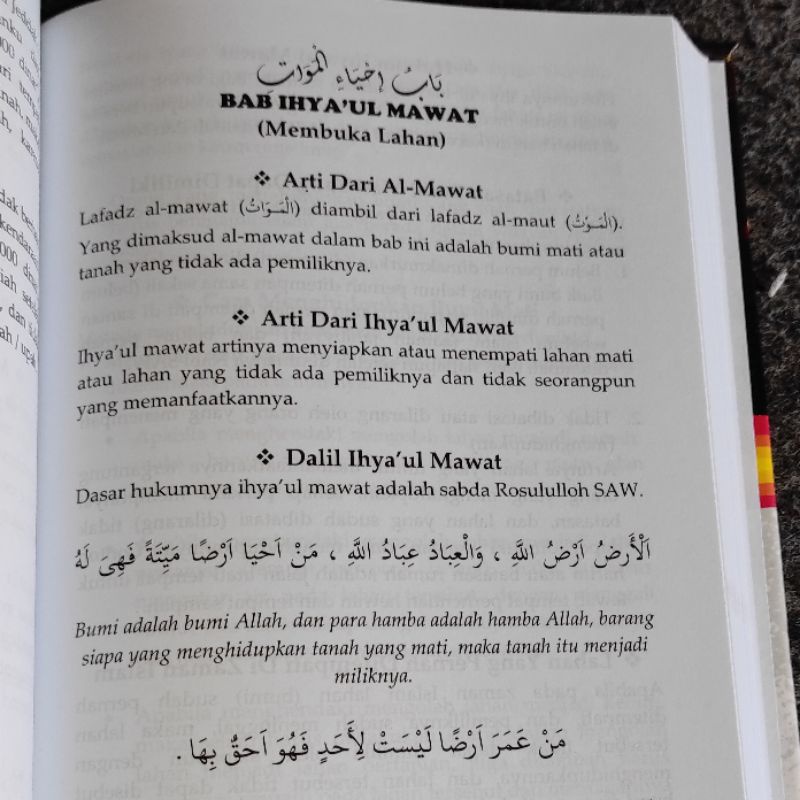 بَابُ إِحْيَاءِ الْمَوَاتِ
BAB IHYA'UL MAWAT
(Membuka Lahan)
❖ Arti Dari Al-Mawat
Lafadz al-mawat (الْمَوَاتُ) diambil dari lafadz al-maut (الْمَوْتُ).
Yang dimaksud al-mawat dalam bab ini adalah bumi mati atau
tanah yang tidak ada pemiliknya.
❖ Arti Dari Ihya'ul Mawat
Ihya'ul mawat artinya menyiapkan atau menempati lahan mati
atau lahan yang tidak ada pemiliknya dan tidak seorangpun
yang memanfaatkannya.
❖ Dalil Ihya'ul Mawat
Dasar hukumnya ihya'ul mawat adalah sabda Rosululloh SAW.
اَلْأَرضُ اَرْضُ اللَّهِ ، وَالْعِبَادُ عِبَادُ اللَّهِ ، مَنْ اَحْيَا اَرْضًا مَيِّتَةً فَهِيَ لَهُ
Bumi adalah bumi Allah, dan para hamba adalah hamba Allah, barang
siapa yang menghidupkan tanah yang mati, maka tanah itu menjadi
miliknya.
مَنْ عَمَرَ اَرْضًا لَيْسَتْ لِأَحَدٍ فَهُوَ اَحَقُّ بِهَا .